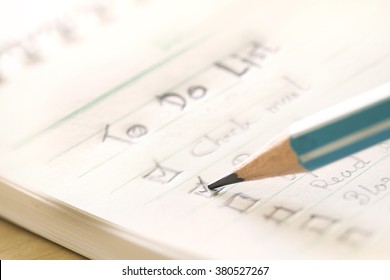 To Do List
Check mail
Read
shutterstock.com · 380527267